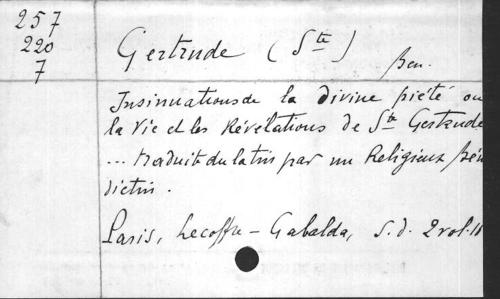 257
220
7
Gertrude (Ste)
Ben.
Insinuations de la divine piété ou
la Vie et les Révélations de Ste Gertrude
... traduit du latin par un Religieux Béné
dictin.
Paris, Lecoffre - Gabalda, S.d. 2 vol.